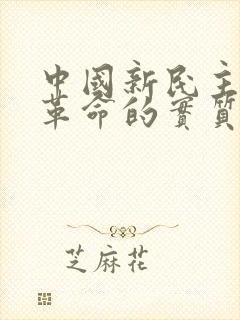 中國新民主
革命的實質
芝麻花